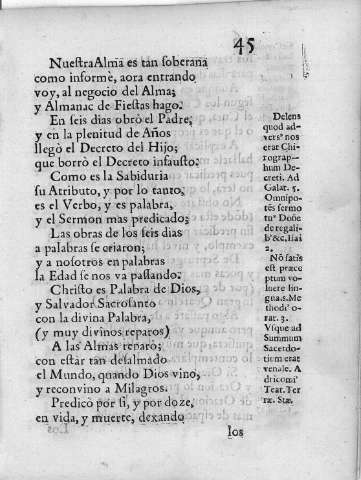 45
NuestraAlma es tan soberana
como informè, aora entrando
voy, al negocio del Alma;
y Almanac de Fiestas hago.
En seis dias obrò el Padre,
y en la plenitud de Años
llegò el Decreto del Hijo;
que borrò el Decreto infausto.
Como es la Sabiduria
su Atributo, y por lo tanto,
es el Verbo, y es palabra,
y el Sermon mas predicado;
Las obras de los seis dias
a palabras se criaron;
y a nosotros en palabras
la Edad se nos va passando.
Christo es Palabra de Dios,
y Salvador Sacrosanto
con la divina Palabra,
(y muy divinos reparos)
A las Almas reparò;
con estàr tan desalmado
el Mundo, quando Dios vino,
y reconvino a Milagros.
Predicò por sì, y por doze,
en vida, y muerte, dexando
los
Delens
quod ad-
vers' nos
erat Chi-
rograp-
hum De-
creti. Ad
Galat. 5.
Omnipo-
tēs sermo
tu' Dñe
de regali-
b'&c. Isai
2.
Nō satis
est præce
ptum vo-
luere lin-
guas. Me
thodi' o-
rar. 3.
Vsque ad
Summum
Sacerdo-
tium erat
venale. A
dricomi'
Teat. Ter
ræ. Stæ.